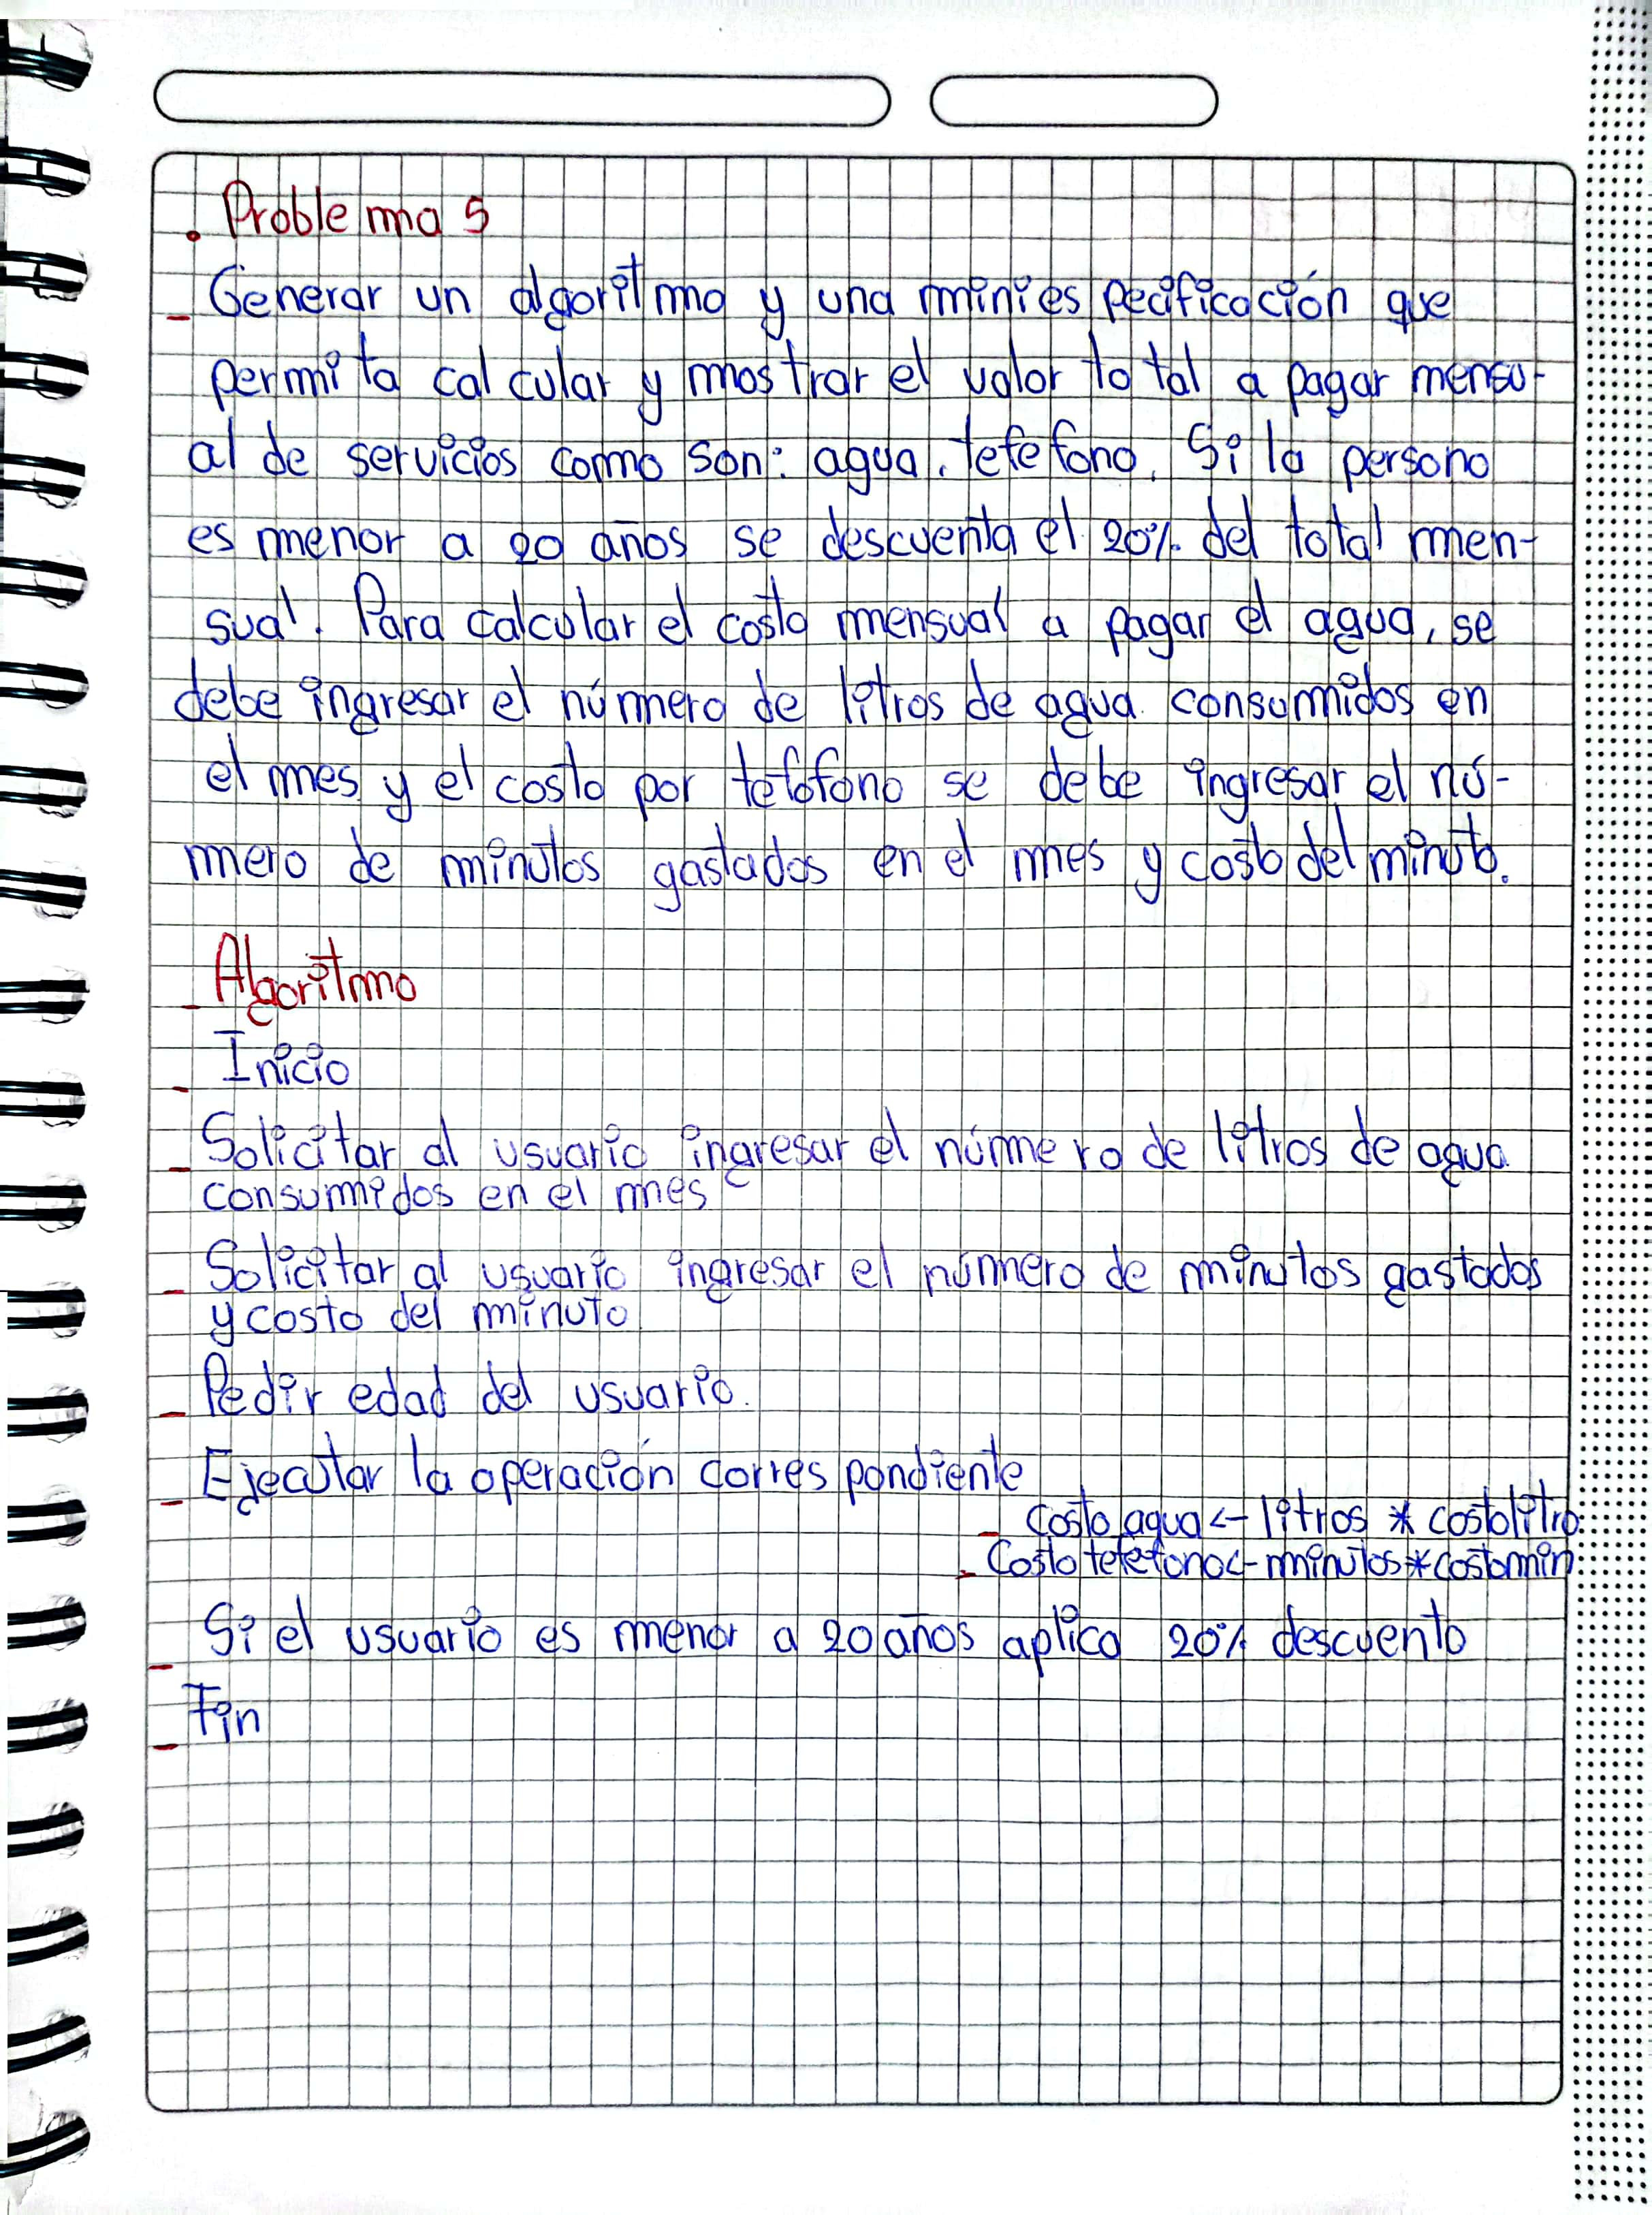 . Problema 5
- Generar un algoritmo y una miniespecificación que
permita calcular y mostrar el valor total a pagar mensu-
al de servicios como son: agua, telefono. Si la persona
es menor a 20 años se descuenta el 20% del total men-
sual. Para calcular el costo mensual a pagar el agua, se
debe ingresar el número de litros de agua consumidos en
el mes y el costo por teléfono se debe ingresar el nú-
mero de minutos gastados en el mes y costo del minuto.
- Algoritmo
- Inicio
- Solicitar al usuario ingresar el número de litros de agua
consumidos en el mes
- Solicitar al usuario ingresar el número de minutos gastados
y costo del minuto
- Pedir edad del usuario.
- Ejecutar la operación correspondiente
- Costo agua <- litros * costolitro
- Costo telefono <- minutos * costomin
- Si el usuario es menor a 20 años aplica 20% descuento
- Fin